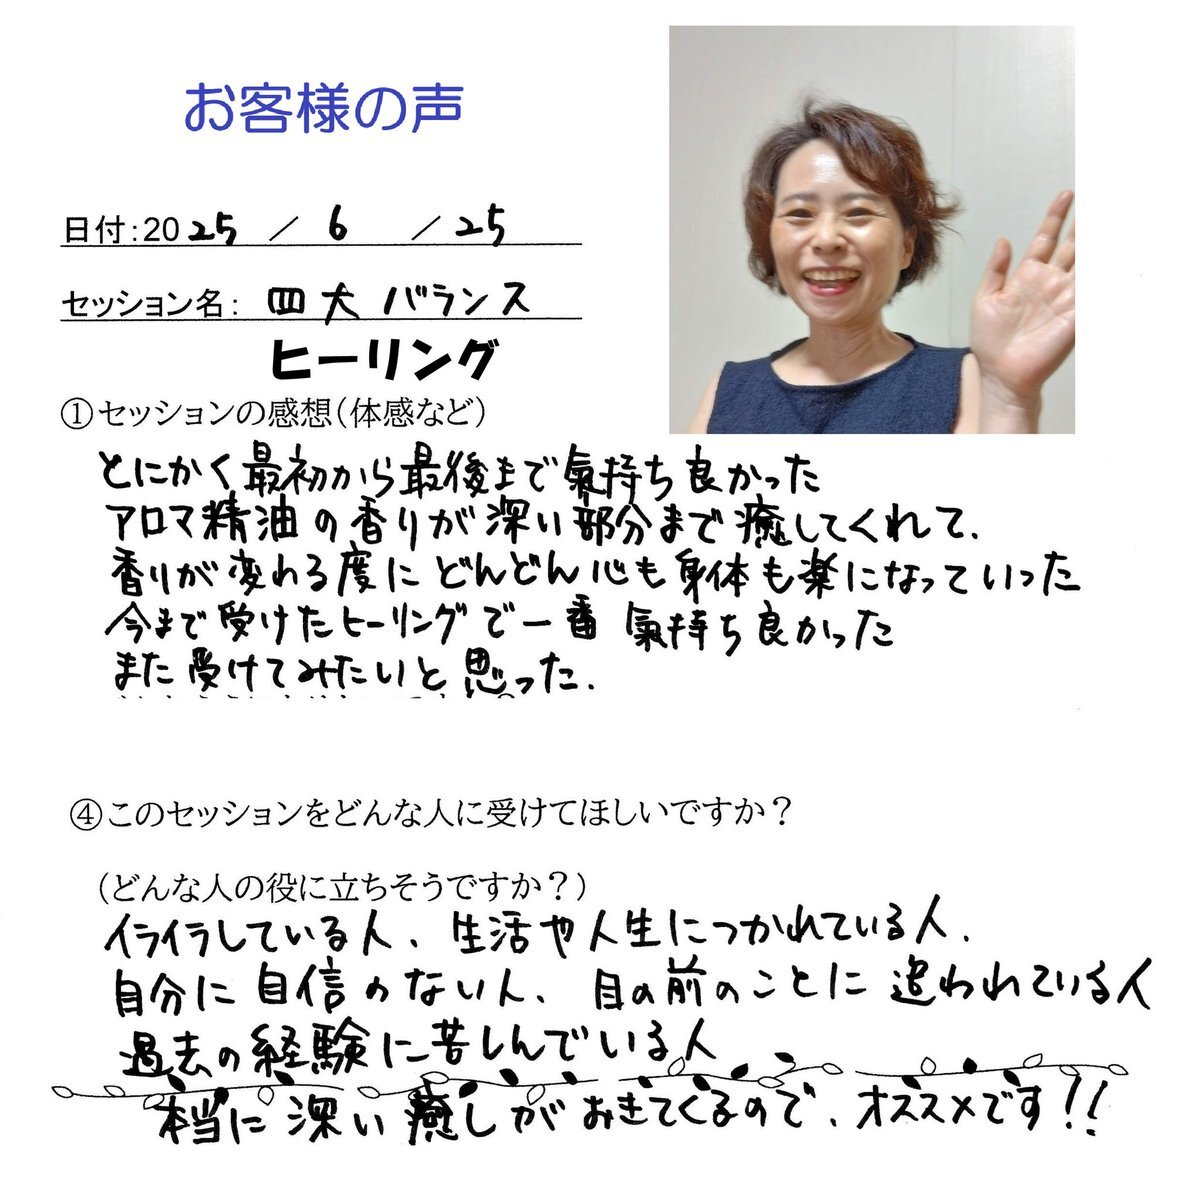 お客様の声
日付：2025 / 6 / 25
セッション名： 四大バランス
ヒーリング
①セッションの感想（体感など）
とにかく最初から最後まで氣持ち良かった
アロマ精油の香りが深い部分まで癒してくれて、
香りが変わる度にどんどん心も身体も楽になっていった
今まで受けたヒーリングで一番氣持ち良かった
また受けてみたいと思った.
④このセッションをどんな人に受けてほしいですか？
（どんな人の役に立ちそうですか？）
イライラしている人、生活や人生につかれている人、
自分に自信のない人、目の前のことに追われている人
過去の経験に苦しんでいる人
本当に深い癒しがおきてくるので、オススメです!!